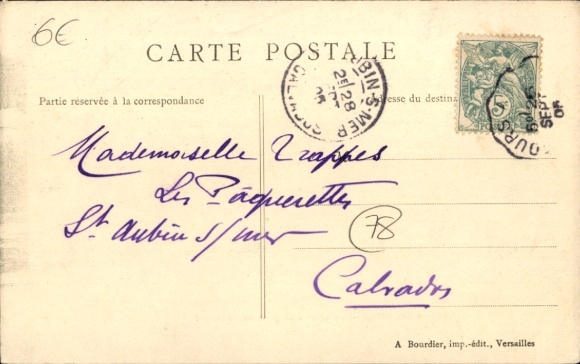 6€
CARTE POSTALE
Partie réservée à la correspondance
Adresse du destina
BIN-S-MER
2E
28
CAL
5
OURS
SEPT
05
Mademoiselle Trappes
Les Pâquerettes
St Aubin s/mer
78
Calvados
A Bourdier, imp.-édit., Versailles